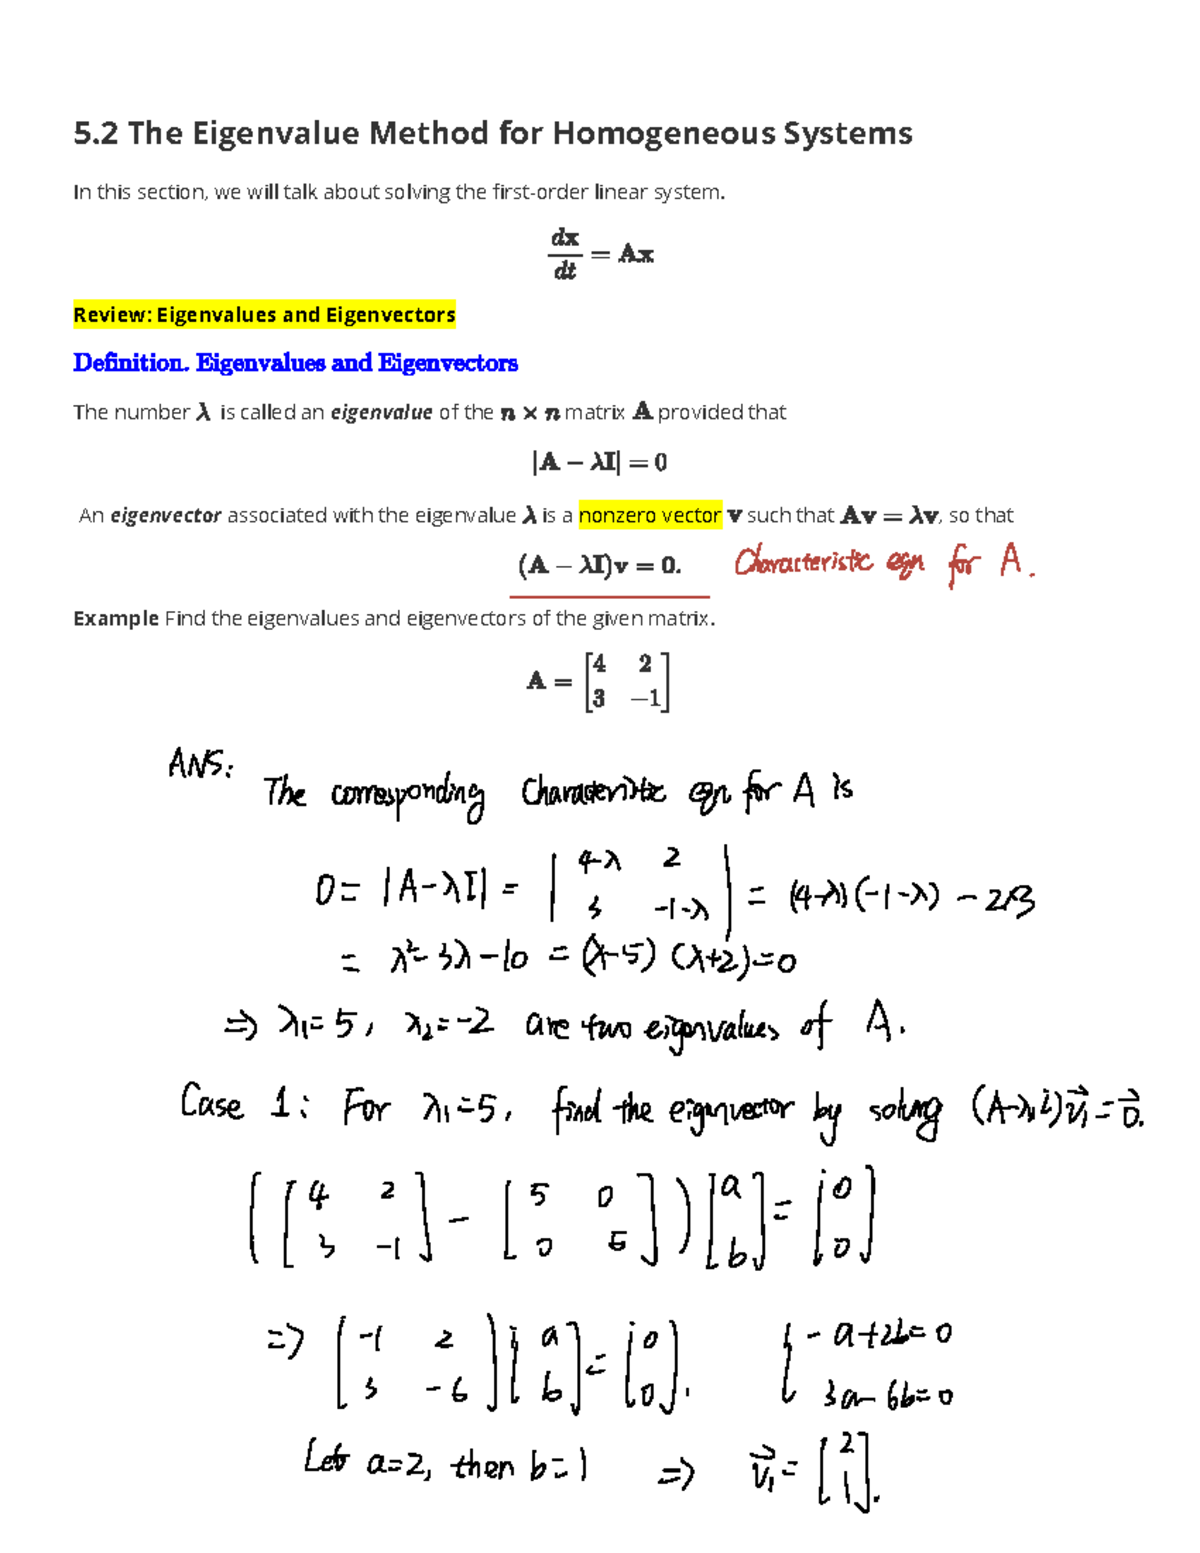 5.2 The Eigenvalue Method for Homogeneous Systems
In this section, we will talk about solving the first-order linear system.
dx/dt = Ax
Review: Eigenvalues and Eigenvectors
Definition. Eigenvalues and Eigenvectors
The number λ is called an eigenvalue of the n × n matrix A provided that
|A − λI| = 0
An eigenvector associated with the eigenvalue λ is a nonzero vector v such that Av = λv, so that
(A − λI)v = 0. Characteristic eqn for A.
Example Find the eigenvalues and eigenvectors of the given matrix.
A = [4 2; 3 −1]
ANS:
The corresponding Characteristic eqn for A is
0 = |A-λI| = |4-λ 2; 3 -1-λ| = (4-λ)(-1-λ) - 2×3
= λ²-3λ-10 = (λ-5)(λ+2)=0
⇒ λ₁=5, λ₂=-2 are two eigenvalues of A.
Case 1: For λ₁=5, find the eigenvector by solving (A-λ₁I)v⃗₁=0⃗.
([4 2; 3 -1] - [5 0; 0 5]) [a; b] = [0; 0]
⇒ [-1 2; 3 -6] [a; b] = [0; 0]. { -a+2b=0; 3a-6b=0
Let a=2, then b=1 ⇒ v⃗₁ = [2; 1].